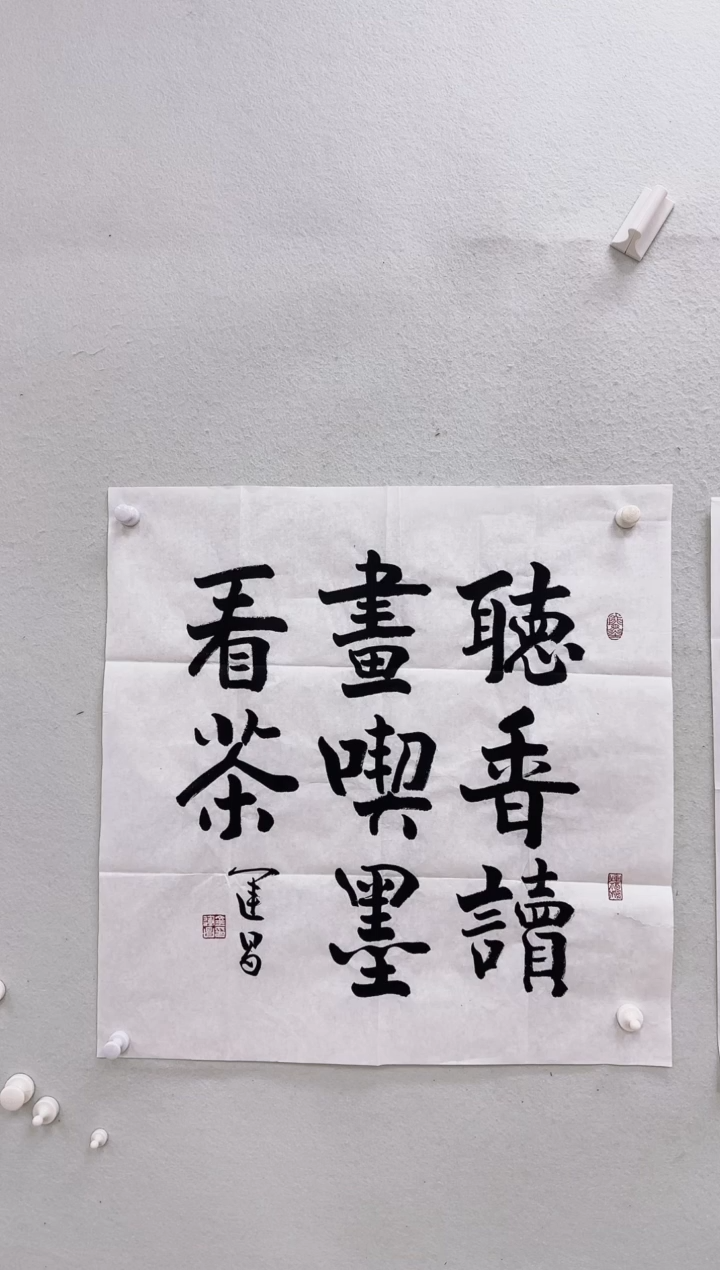 聽香讀
畫喫墨
看茶